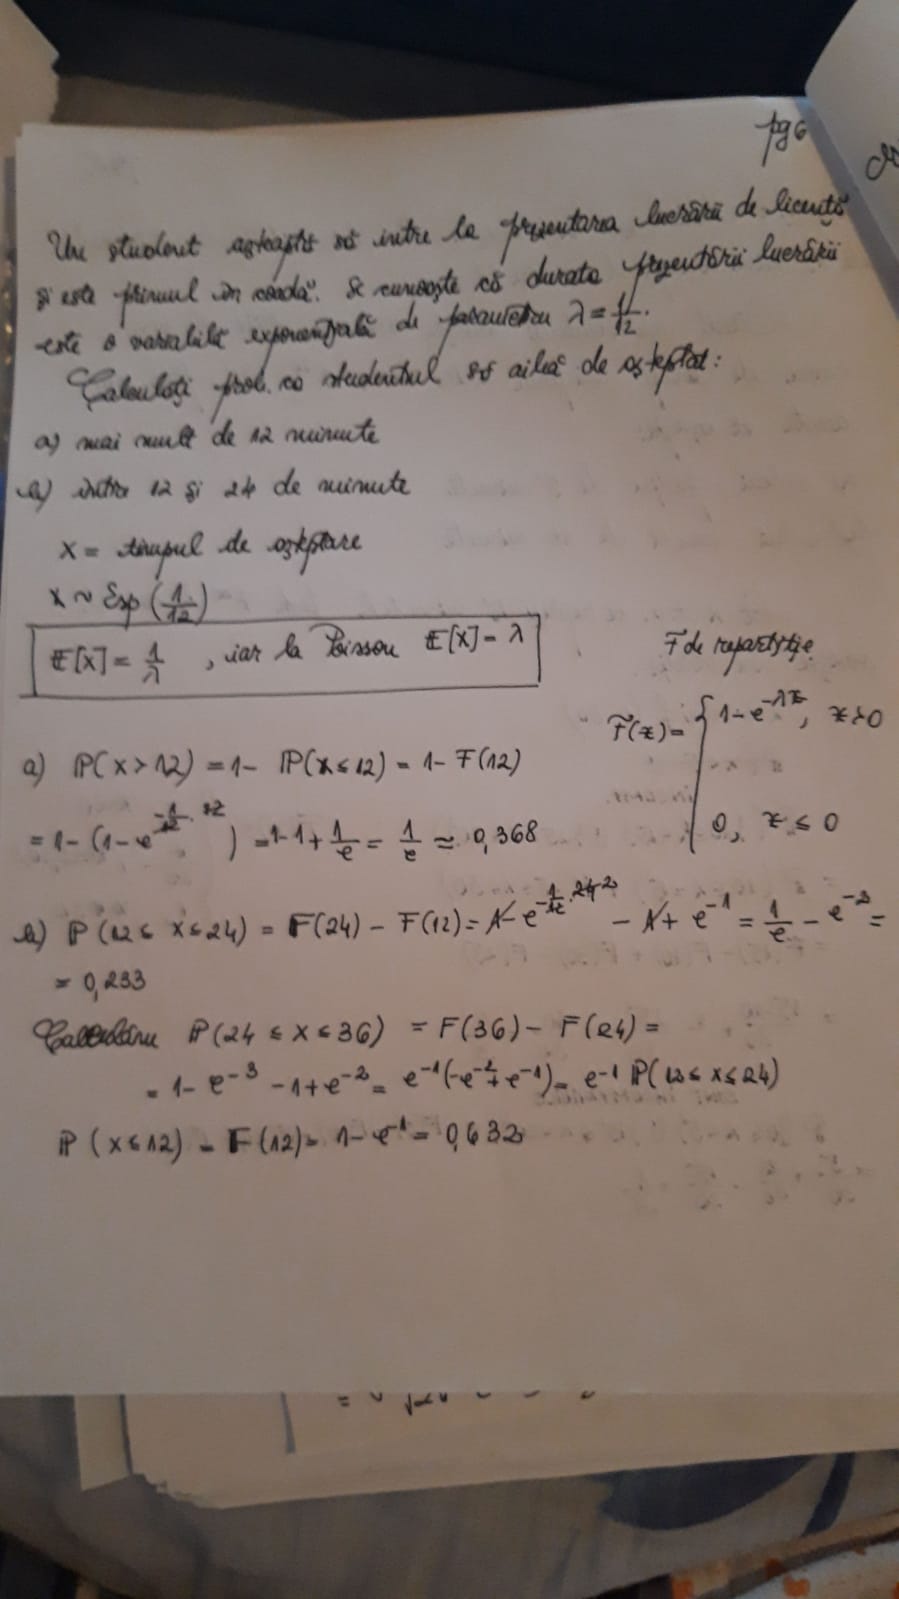 pg 6
Un student așteaptă să intre la prezentarea lucrării de licență
și este primul "în coadă". Se cunoaște că durata prezentării lucrării
este o variabilă exponențială de parametru λ = 1/12.
Calculați prob. ca studentul să aibă de așteptat:
a) mai mult de 12 minute
b) între 12 și 24 de minute
X = timpul de așteptare
X ~ Exp(1/12)
E[X] = 1/λ, iar la Poisson E[X] = λ
F de repartiție
F(x) = { 1 - e^{-λx}, x > 0
0, x ≤ 0
a) P(X > 12) = 1 - P(X ≤ 12) = 1 - F(12)
= 1 - (1 - e^{-1/12 · 12}) = 1 - 1 + 1/e = 1/e ≈ 0,368
b) P(12 ≤ X ≤ 24) = F(24) - F(12) = 1 - e^{-1/12 · 24 2} - 1 + e^{-1} = 1/e - e^{-2} =
= 0,233
Calculăm P(24 ≤ X ≤ 36) = F(36) - F(24) =
= 1 - e^{-3} - 1 + e^{-2} = e^{-1}(-e^{-2} + e^{-1}) = e^{-1} P(12 ≤ X ≤ 24)
P(X ≤ 12) = F(12) = 1 - e^{-1} = 0,632